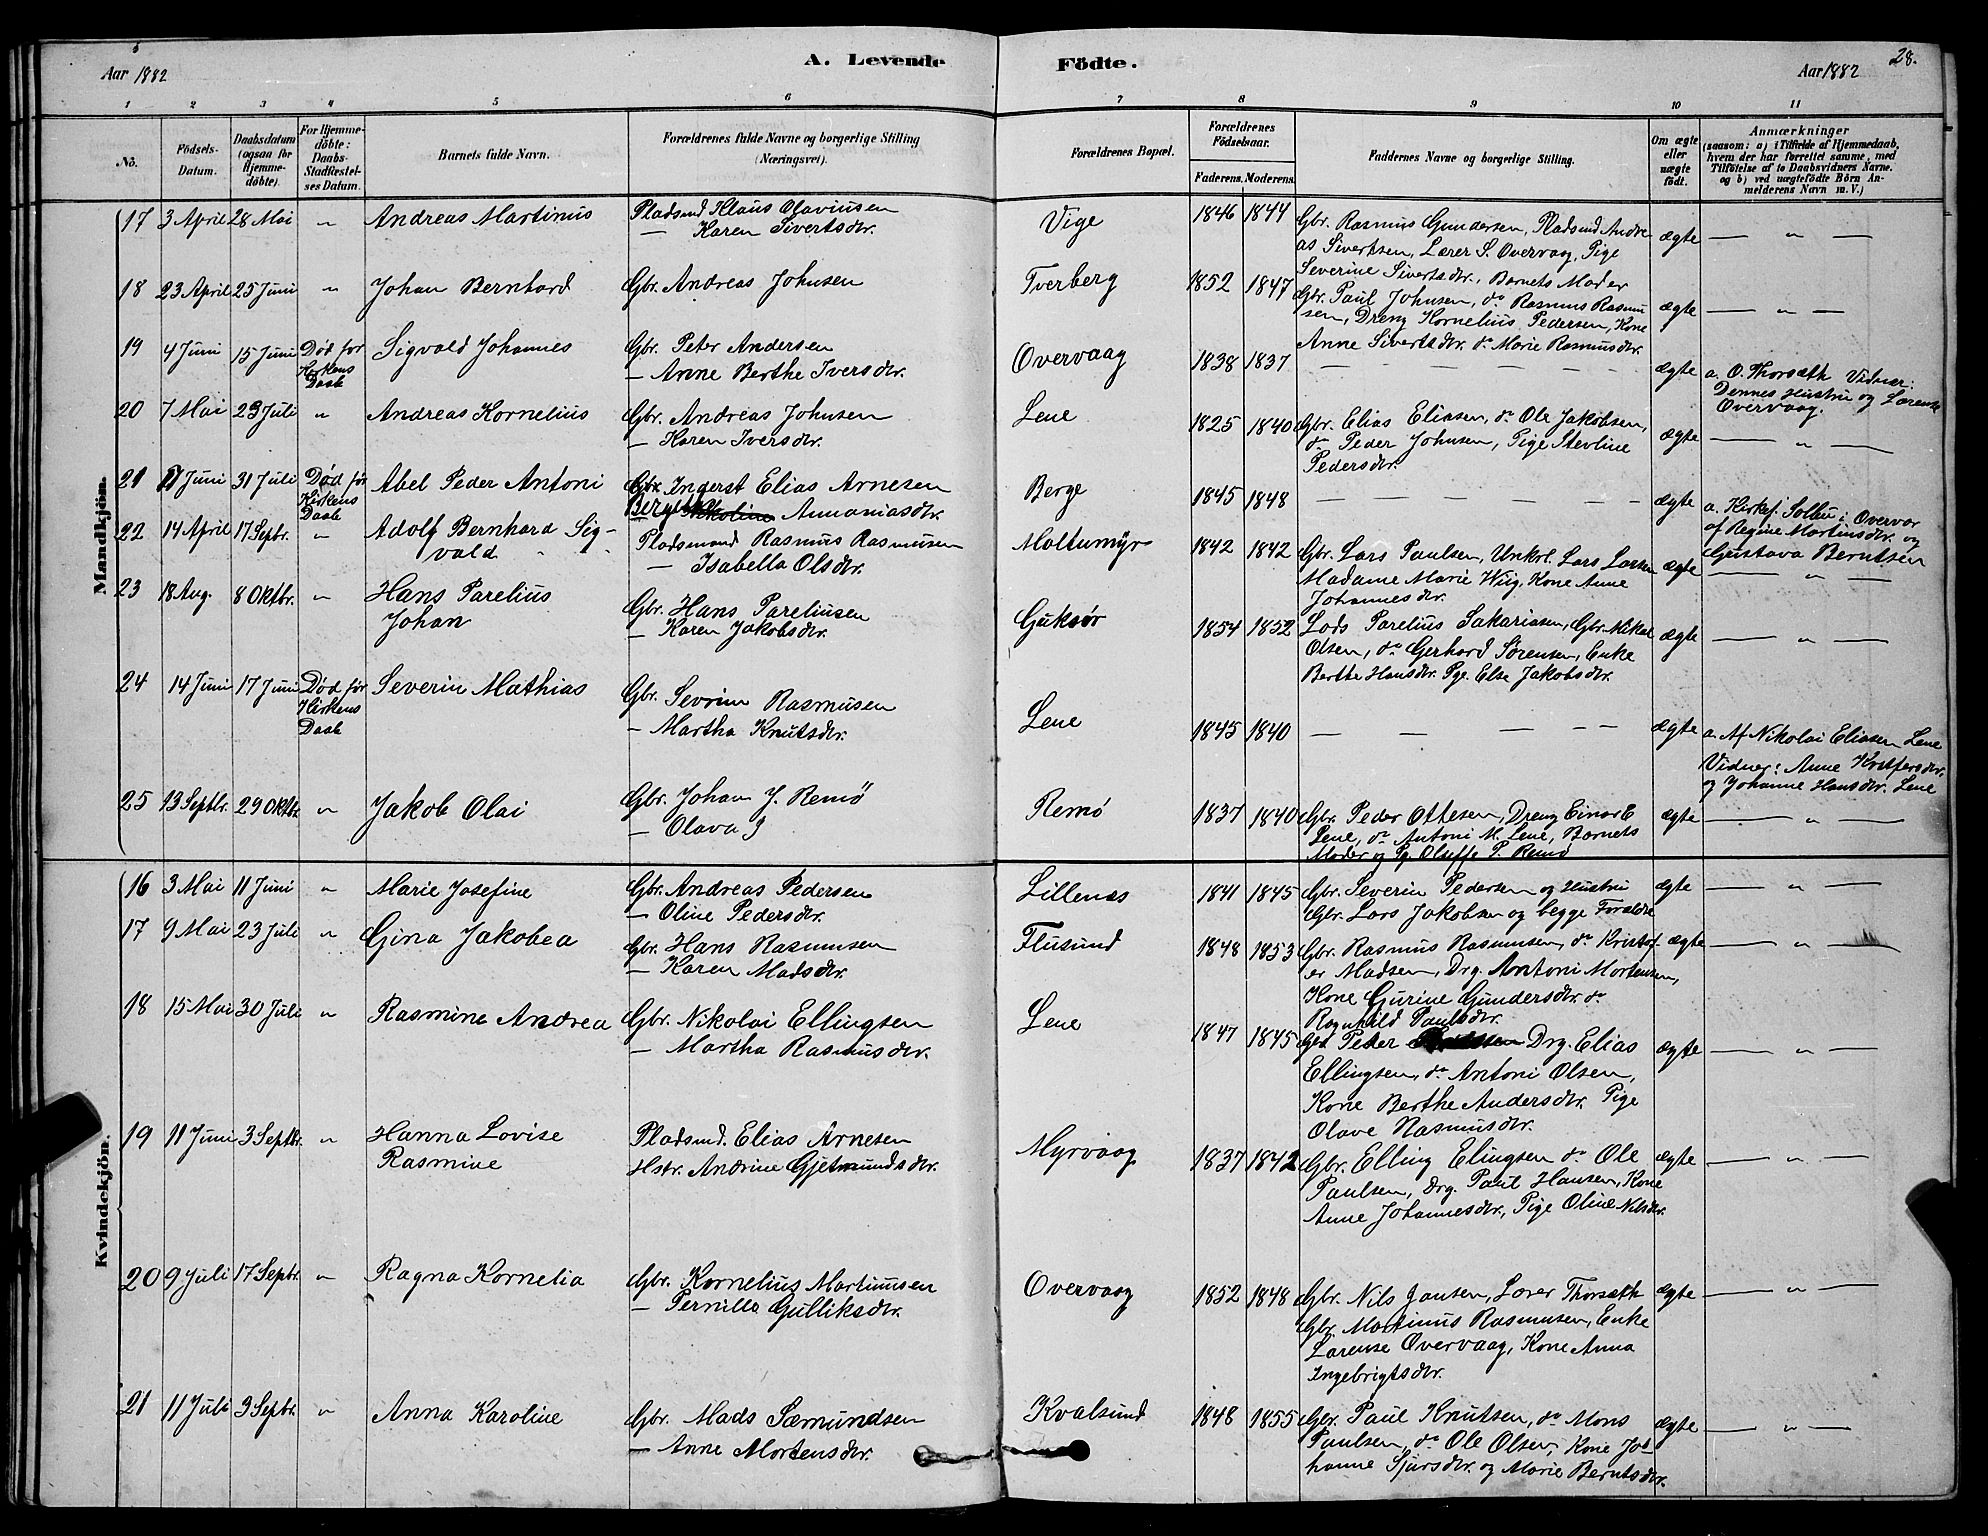 28.
Aar 1882
A. Levende Födte.
Aar 1882
1 2 3 4 5 6 7 8 9 10 11
No.
Födsels-Datum.
Daabsdatum (ogsaa for Hjemme-döbte).
For Hjemme-döbte: Daabs-Stadfestel-ses Datum.
Barnets fulde Navn.
Forældrenes fulde Navne og borgerlige Stilling (Næringsvei).
Forældrenes Bopæl.
Forældrenes Födselsaar.
Faderens. Moderens.
Faddernes Navne og borgerlige Stilling.
Om ægte eller uægte födt.
Anmærkninger
(saasom: a) i Tilfælde af Hjemmedaab, hvem der har forrettet samme, med Tilföielse af to Daabsvidners Navne. og b) ved uægtefödte Börn An-melderens Navn m. V.)
Mandkjön.
17 3 April 28 Mai " Andreas Martinus
Pladsmd Klaus Olaviusen
— Karen Sivertsdtr.
Vige 1846 1844
Gbr. Rasmus Gundersen, Pladsmd Andre
as Sivertsen, Lærer S. Overvaag, Pige
Severine Sivertsdtr., Barnets Moder
ægte — " —
18 23 April 25 Juni " Johan Bernhard
Gbr. Andreas Johnsen
Tverberg 1852 1847
Gbr. Paul Johnsen, do Rasmus Rasmu
sen, Dreng Kornelius Pedersen, Kone
Anne Sivertsdtr. do Marie Rasmusdtr.
ægte — " —
19 4 Juni 15 Juni Død før Kirkens Daab Sigvald Johannes
Gbr. Peter Andersen
— Anne Berthe Iversdtr.
Overvaag 1838 1837 — — — — — — ægte
a. O. Thorsæth Vidner:
Dennes Hustru og Lorense
Overvaag.
20 7 Mai 23 Juli " Andreas Kornelius
Gbr. Andreas Johnsen
— Karen Iversdtr.
Lene 1825 1840
Gbr. Elias Eliasen, do Ole Jakobsen,
do Peder Johnsen, Pige Stevline
Pedersdtr.
ægte — " —
21 Juni 31 Juli Død før Kirkens Daab Abel Peder Antoni
Inderst Elias Arnesen
Annaniasdtr.
Berge 1845 1848 — — — — — — ægte
a. Kirkes. Solli i Overvor
af Regine Martinsdtr. og
Gustava Berntsen
22 14 April 17 Septbr. " Adolf Bernhard Sig-
vald
Pladsmand Rasmus Rasmusen
— Isabella Olsdtr.
Moltumyr 1842 1842
Gbr. Lars Paulsen, Unkrl. Lars Larsen
Madame Marie Wiig, Kone Anne
Johannesdtr.
ægte — " —
23 18 Aug. 8 Oktbr. " Hans Parelius
Johan
Gbr. Hans Pareliusen
— Karen Jakobsdtr.
Gjuksør 1854 1852
Lods Parelius Sakariasen, Gbr. Mikal
Olsen, do Gerhard Sørensen, Enke
Berthe Hansdtr. Pge. Else Jakobsdtr.
ægte — " —
24 14 Juni 17 Juni Død før Kirkens Daab Severin Mathias
Gbr. Sevrin Rasmusen
— Martha Knutsdtr.
Lene 1845 1840 — — — — — ægte
a. Af Nikolai Eliasen Lene
Vidner: Anne Kristfersdtr.
og Johanne Hansdtr. Lene
25 13 Septbr. 29 Oktbr " Jakob Olai
Gbr. Johan J. Remö
— Olava J
Remö 1837 1840
Gbr. Peder Ottesen, Dreng Einar E
Lene, do Antoni M. Lene, Barnets
Moder og Pg. Oleffe P. Remö
ægte — " —
Kvindekjön.
16 3 Mai 11 Juni " Marie Josefine
Gbr. Andreas Pedersen
— Oline Pedersdtr.
Lillenæs 1841 1845
Gbr. Severin Pedersen og Hustru
Gbr. Lars Jakobsen og begge Forældre
ægte — " —
17 9 Mai 23 Juli " Gina Jakobea
Gbr. Hans Rasmusen
— Karen Madsdtr.
Flusund 1848 1853
Gbr. Rasmus Rasmusen, do Kristof-
er Madsen, Drg. Antoni Mortensen,
Kone Gurine Gundersdtr. do
Ragnhild Paulsdtr.
ægte — " —
18 15 Mai 30 Juli " Rasmine Andrea
Gbr. Nikolai Ellingsen
— Martha Rasmusdtr.
Lene 1847 1845
Gbr. Peder Drg. Elias
Ellingsen, do Antoni Olsen,
Kone Berthe Andersdtr. Pige
Olave Rasmusdtr.
ægte — " —
19 11 Juni 3 Septbr. " Hanna Lovise
Rasmine
Pladsmd. Elias Arnesen
Hstr. Andrine Gjetmundsdtr.
Myrvaag 1837 1842
Gbr. Elling Elingsen do Ole
Paulsen, Drg. Paul Hansen, Kone
Anne Johannesdtr., Pige Oline Nilsdtr.
ægte — " —
20 9 Juli 17 Septbr. " Ragna Kornelia
Gbr. Kornelius Martinusen
— Pernille Gulliksdtr.
Overvaag 1852 1848
Gbr. Nils Jansen, Lærer Thorsæth
Gbr. Martinus Rasmusen, Enke
Lorense Overvaag, Kone Anna
Ingebrigtsdtr.
ægte — " —
21 11 Juli 3 Septbr. " Anna Karoline
Gbr. Mads Sæmundsen
— Anne Mortensdtr.
Kvalsund 1848 1855
Gbr. Paul Knutsen, do Mons
Paulsen, do Ole Olsen, Kone Jo-
hanne Sjursdtr. og Marie Berntsdtr.
ægte — " —